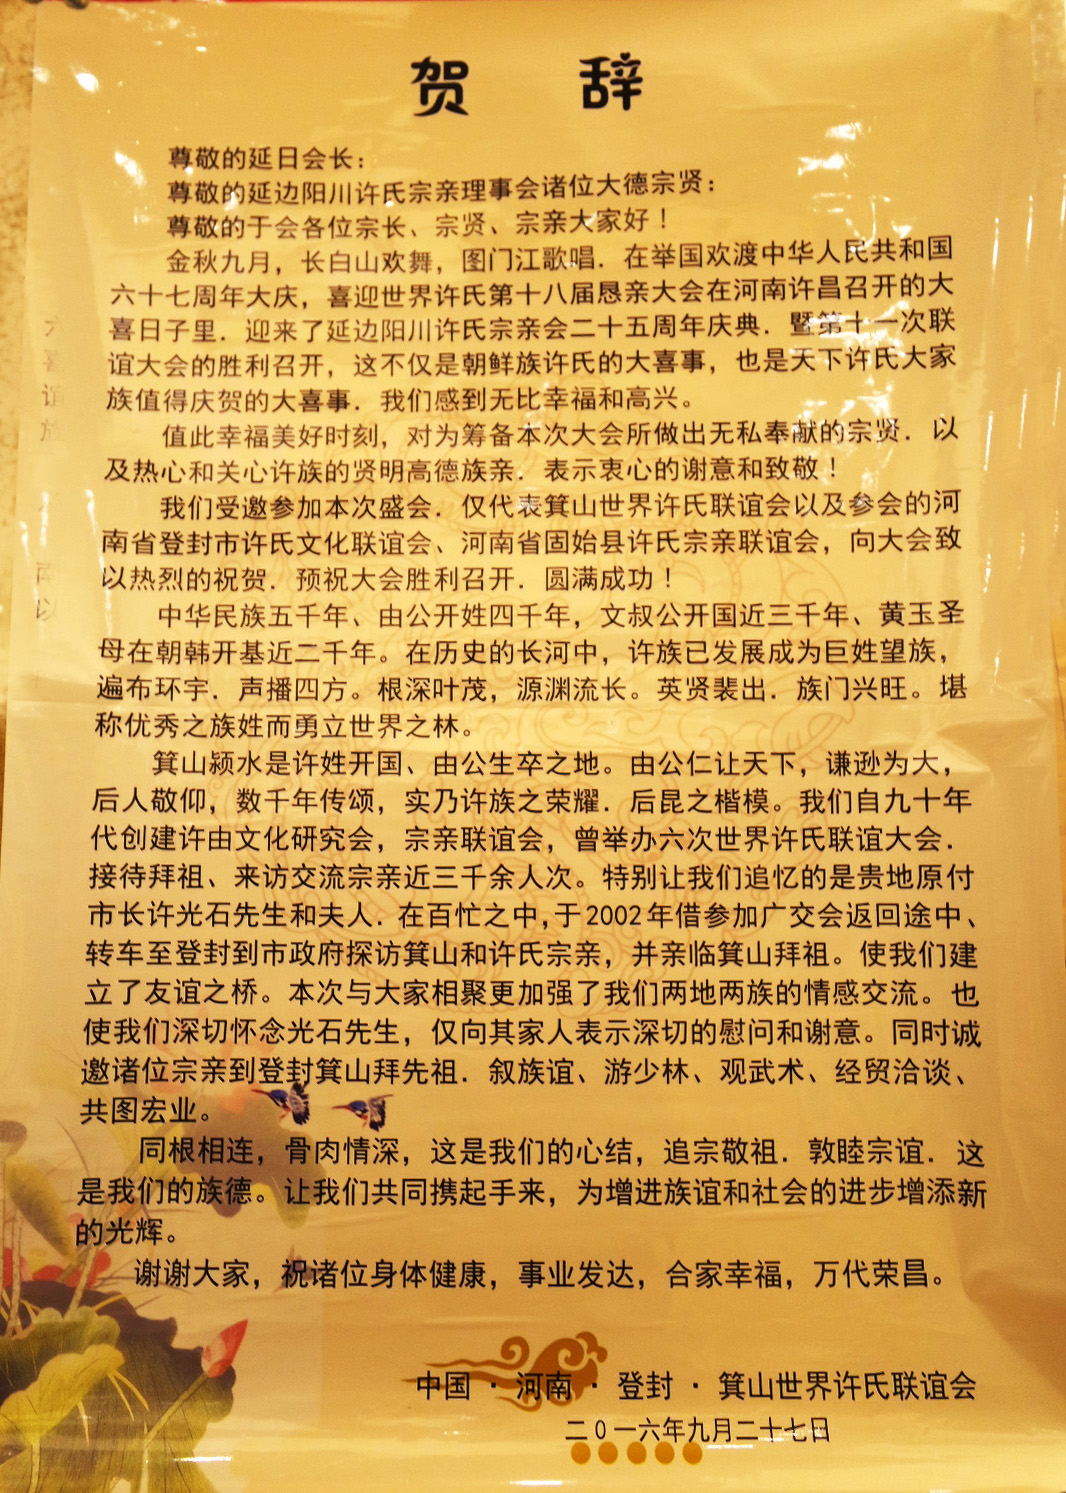 贺 辞
尊敬的延日会长：
尊敬的延边阳川许氏宗亲理事会诸位大德宗贤：
尊敬的于会各位宗长、宗贤、宗亲大家好！
金秋九月，长白山欢舞，图门江歌唱．在举国欢渡中华人民共和国
六十七周年大庆，喜迎世界许氏第十八届恳亲大会在河南许昌召开的大
喜日子里．迎来了延边阳川许氏宗亲会二十五周年庆典．暨第十一次联
谊大会的胜利召开，这不仅是朝鲜族许氏的大喜事，也是天下许氏大家
族值得庆贺的大喜事．我们感到无比幸福和高兴。
值此幸福美好时刻，对为筹备本次大会所做出无私奉献的宗贤．以
及热心和关心许族的贤明高德族亲．表示衷心的谢意和致敬！
我们受邀参加本次盛会．仅代表箕山世界许氏联谊会以及参会的河
南省登封市许氏文化联谊会、河南省固始县许氏宗亲联谊会，向大会致
以热烈的祝贺．预祝大会胜利召开．圆满成功！
中华民族五千年、由公开姓四千年，文叔公开国近三千年、黄玉圣
母在朝韩开基近二千年。在历史的长河中，许族已发展成为巨姓望族，
遍布环宇．声播四方。根深叶茂，源渊流长。英贤裴出．族门兴旺。堪
称优秀之族姓而勇立世界之林。
箕山颍水是许姓开国、由公生卒之地。由公仁让天下，谦逊为大，
后人敬仰，数千年传颂，实乃许族之荣耀．后昆之楷模。我们自九十年
代创建许由文化研究会，宗亲联谊会，曾举办六次世界许氏联谊大会．
接待拜祖、来访交流宗亲近三千余人次。特别让我们追忆的是贵地原付
市长许光石先生和夫人．在百忙之中，于2002年借参加广交会返回途中、
转车至登封到市政府探访箕山和许氏宗亲，并亲临箕山拜祖。使我们建
立了友谊之桥。本次与大家相聚更加强了我们两地两族的情感交流。也
使我们深切怀念光石先生，仅向其家人表示深切的慰问和谢意。同时诚
邀诸位宗亲到登封箕山拜先祖．叙族谊、游少林、观武术、经贸洽谈、
共图宏业。
同根相连，骨肉情深，这是我们的心结，追宗敬祖．敦睦宗谊．这
是我们的族德。让我们共同携起手来，为增进族谊和社会的进步增添新
的光辉。
谢谢大家，祝诸位身体健康，事业发达，合家幸福，万代荣昌。
中国·河南·登封·箕山世界许氏联谊会
二0一六年九月二十七日